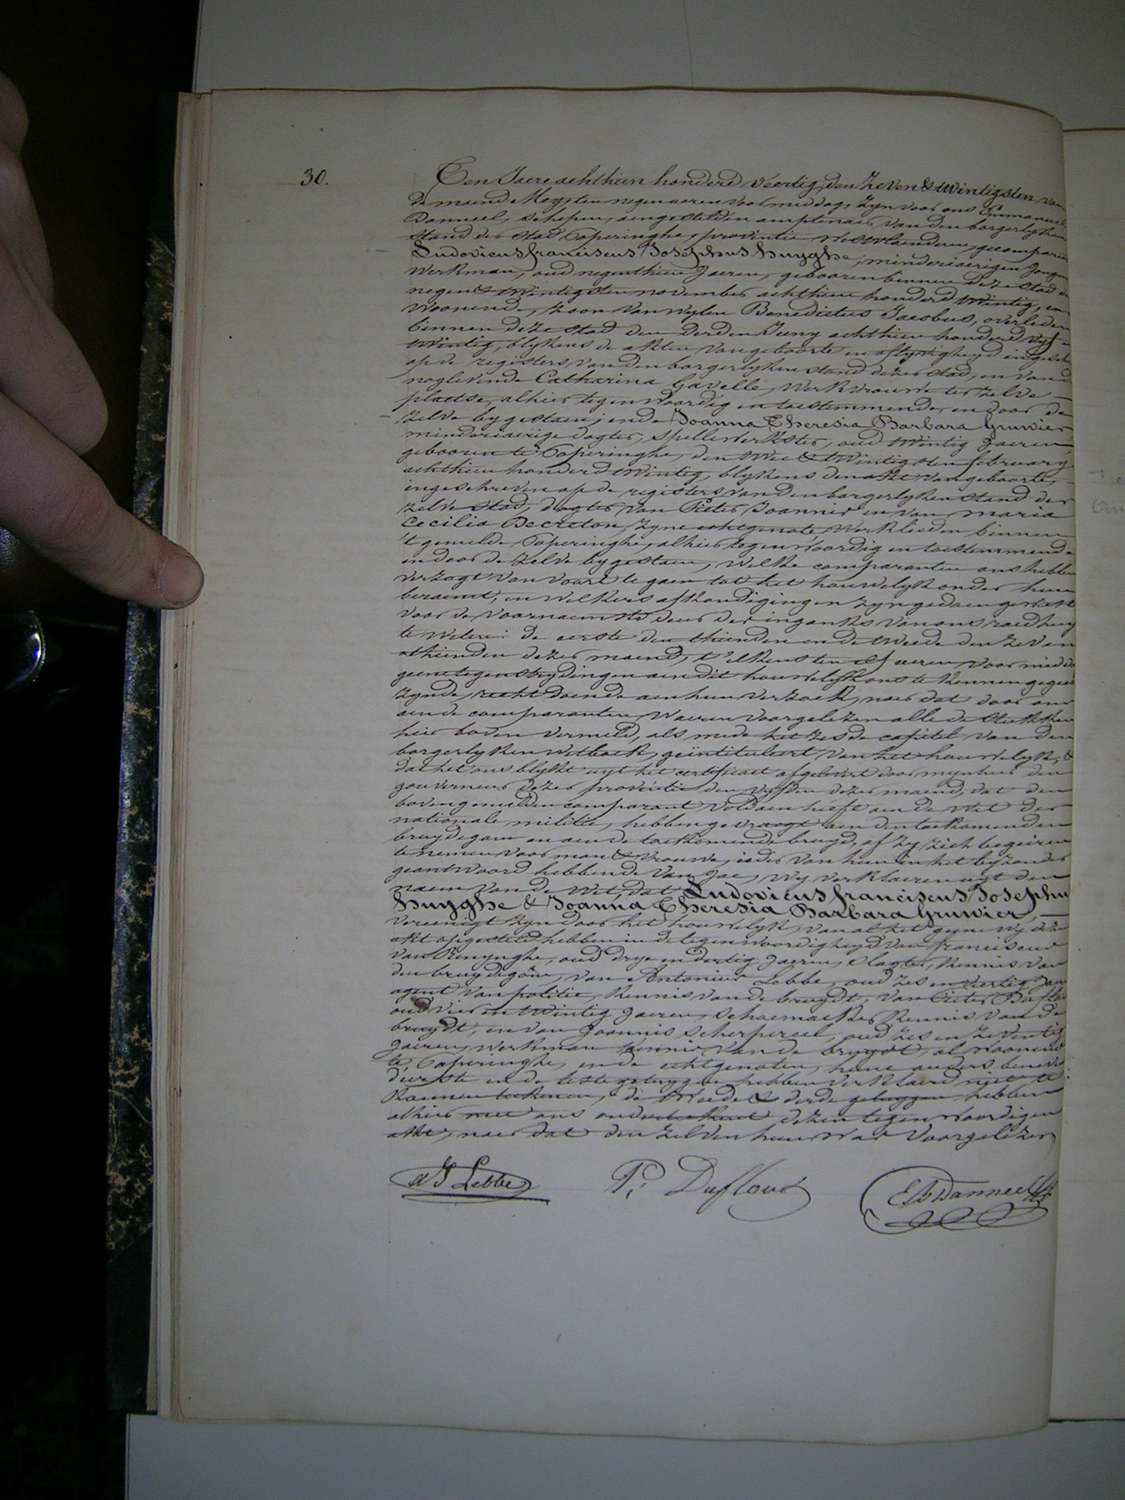 30.
Ten Jaere achthien honderd Veertig, den Zeven & twintigsten van
de maend Mey, ten negen ueren voormiddag, zyn voor ons Emmanuel
Danneel, schepen, aengestelden amptenaer van den borgerlyken
stand der stad Poperinghe, provintie Westvlaenderen, gecompareerd
Ludovicus franciscus Josephus huyghe, minderjaerigen Jongm
Werkman, oud negenthien Jaeren, gebooren binnen deze stad de
negen & twintigsten november achthien honderd twintig, en
Woonende, zoon van wylen Benedictus Jacobus, overleden
binnen deze stad den derden Juny achthien honderd vyf
twintig, blykens de akten van geboorte en aflyvigheyd ingesch
op de registers van den borgerlyken stand dezer stad, en van d
noglevende Catharina Gavelle, Werkvrouwe ter zelve
plaetse, alhier tegenwoordig en toestemmende, en door de
zelve bygestaen; ende Joanna Theresia Barbara Gruwier
minderjaerige dogter, spellewerkster, oud twintig Jaeren
gebooren te Poperinghe, den twee & twintigsten february
achthien honderd twintig, blykens den akt van geboorte,
ingeschreven op de registers van den borgerlyken stand der
zelve stad, dogter van Pieter Joannes en van maria
Cecilia Decreton, zyne echtgenote Werklieden binnen
't gemelde Poperinghe, alhier tegenwoordig en toestemmende
en door de zelve bygestaen, welke comparanten ons hebben
verzogt van voord te gaen tot het houwelyk onder hun
beraemt, en welkers afkondigingen zyn gedaen geweest
voor de voornaemste deur der ingang van ons raedhuys
te weten: de eerste den thienden en de tweede den zeven
thienden dezer maend, t'elkens ten elf ueren voor middag
geene tegenstrydingen aen dit houwelyk ons te kennen gegeven
zynde, recht doende aen hun verzoek, naer dat door ons
aen de comparanten waeren voorgelezen alle de stukken
hier boven vermeld, als mede het zesde capitel van den
borgerlyken Wetboek, geintituleert van het houwelyk, &
dat het ons blykt uyt het certificaet afgelevert door mynheer den
gouverneur dezer provintie den vyfden dezer maend, dat den
bovengemelden comparant voldaen heeft aen de Wet der
nationale militie, hebben gevraegt aen den toekomenden
bruydegom en aen de toekomende bruyd, of zy zich begeiren
te nemen voor man & vrouwe, ieder van hun in het byzonder
geantwoord hebbende van Jae, Wy verklaeren uyt den
naem van de Wet, dat Ludovicus franciscus Josephus
huyghe & Joanna Theresia Barbara Gruwier,
vereenigt zyn door het houwelyk, van al het geene Wy deze
akt opgesteld hebben in de tegenwoordigheyd van franciscus
Van Renynghe, oud drye en dertig Jaeren, slagter, kennis van
den bruydegom, van Antonius Lebbe, oud zes en veertig Jaer
agent van politie, kennis van de bruydt, van Pieter Duflou
oud vier en twintig Jaeren, schoenmaeker, kennis van de
bruydt, en van Joannis Scherpereel, oud zes en zeventig
Jaeren, werkman kennis van de bruydt, al woonende
te Poperinghe, en de echtgenoten, hune auders benevens
d'eerste en de leste getuygen hebben verklaerd niet te
konnen teekenen, de tweede & derde getuygen hebben
alhier met ons onderteekent dezen tegenwoordigen
akt, naer dat den zelven hun was voorgelezen
A J Lebbe P: Duflou E B Danneel